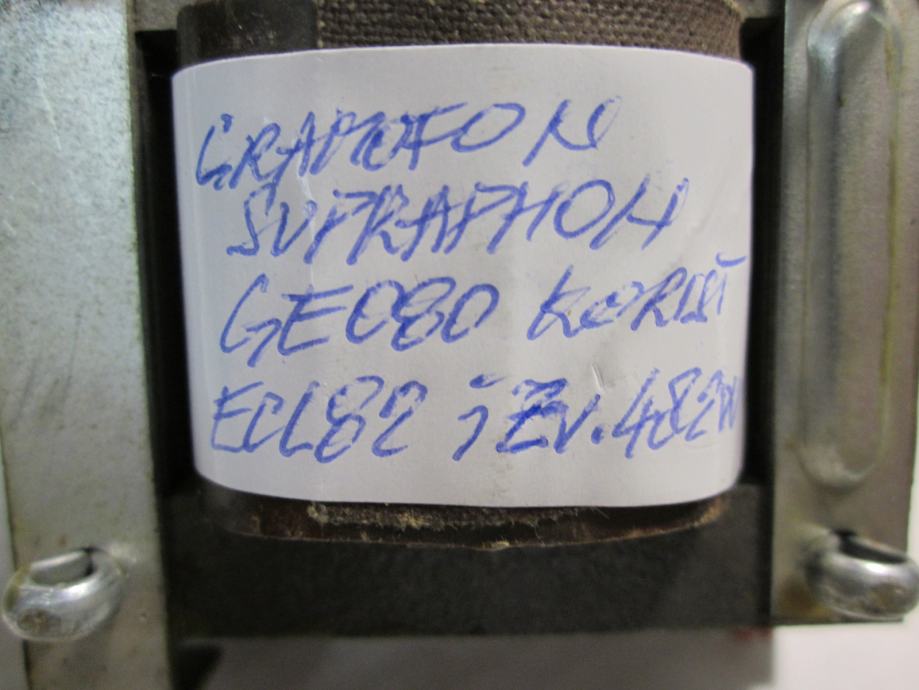 GRAMOFON
SUPRAPHON
GE080 KORIST
ECL82 iZv.482W